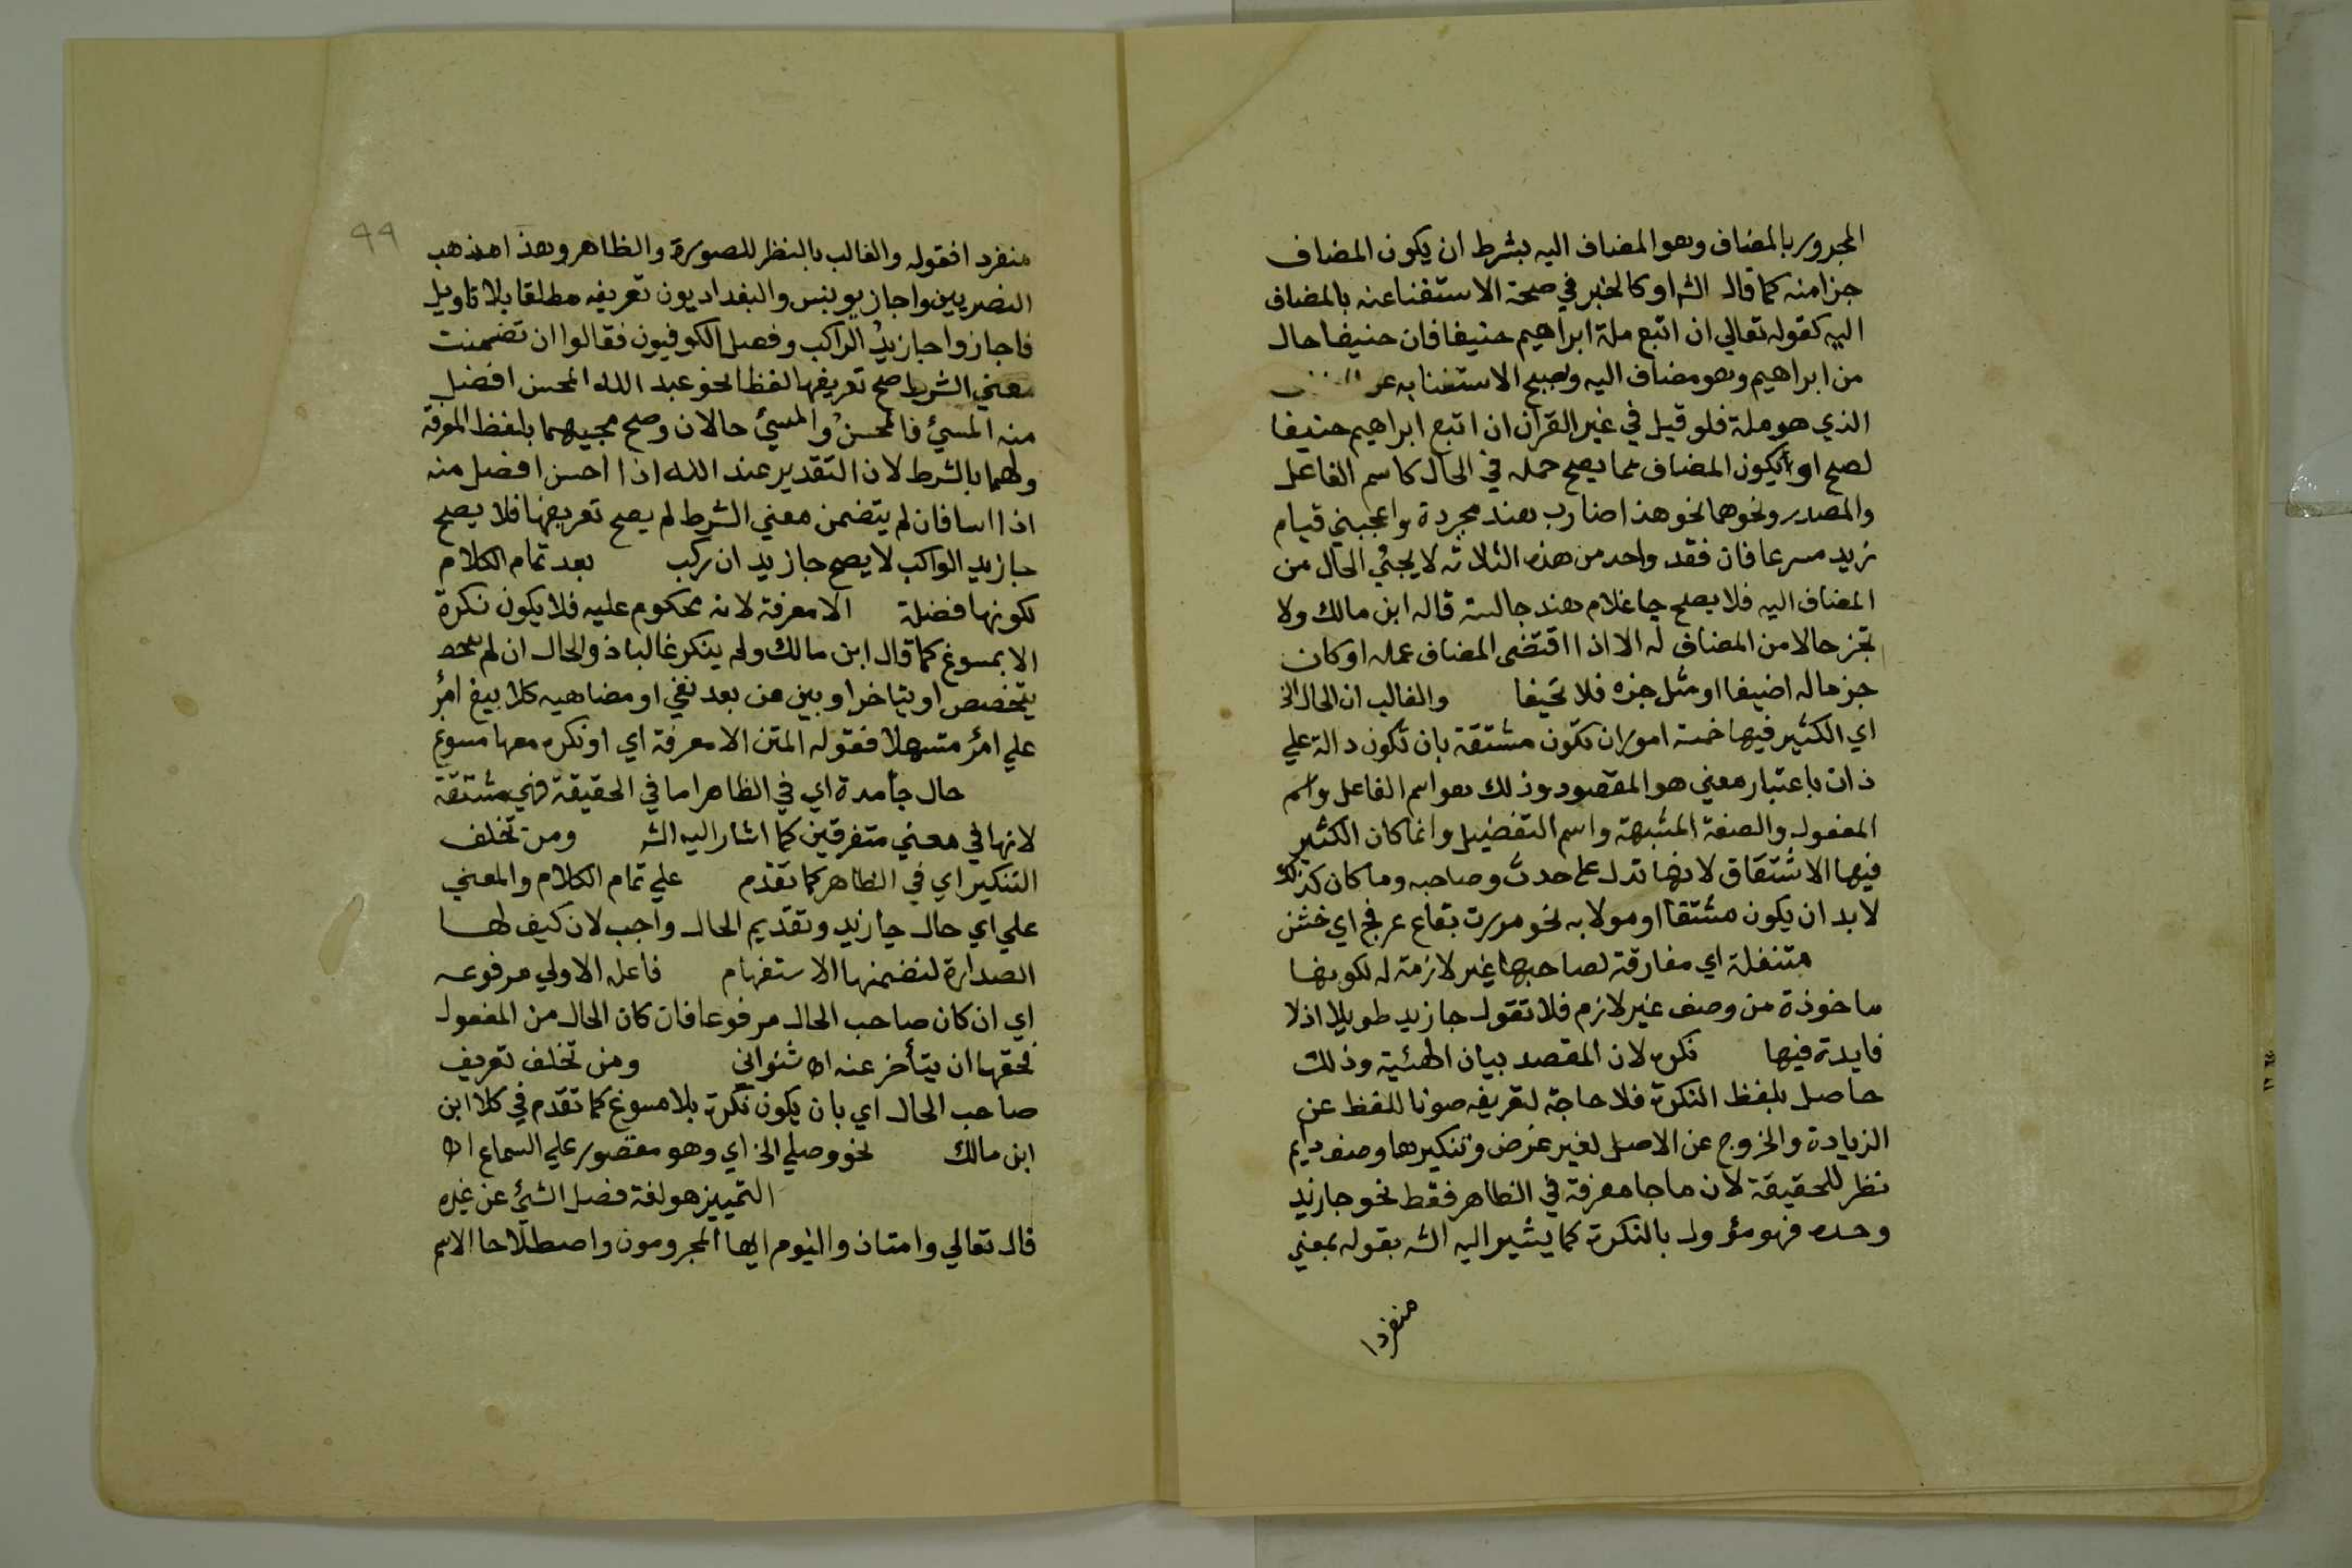 المجرور بالمضاف وهو المضاف اليه بشرط ان يكون المضاف
جزا منه كما قال الش او كالخبر في صحة الاستغنا عنه بالمضاف
اليه كقوله تعالي ان اتبع ملة ابراهيم حنيفا فان حنيفا حال
من ابراهيم وهو مضاف اليه ويصح الاستغنا به عن
الذي هو ملة فلو قيل في غير القران ان اتبع ابراهيم حنيفا
لصح او يكون المضاف مما يصح حمله في الحال كاسم الفاعل
والمصدر ونحوهما نحو هذا ضارب هند مجردة واعجبني قيام
زيد مسرعا فان فقد واحد من هذه الثلاثه لا يجئ الحال من
المضاف اليه فلا يصح جا غلام هند جالسة قاله ابن مالك ولا
تجز حالا من المضاف له الا اذا اقتضى المضاف عمله او كان
جز ماله اضيفا او مثل جزه فلا تحيفا والغالب ان الحال الخ
اي الكثير فيها خمسة امور ان تكون مشتقة بان تكون دالة علي
ذات باعتبار معني هو المقصود وذلك هو اسم الفاعل واسم
المفعول والصفة المشبهة واسم التفضيل وانما كان الكثير
فيها الاشتقاق لانها تدل على حدث وصاحبه وما كان كذلك
لا بد ان يكون مشتقا او مولا به نحو مررت بقاع عرفج اي خشن
متنقلة اي مفارقة لصاحبها غير لازمة له لكونها
ماخوذة من وصف غير لازم فلا تقول جا زيد طويلا اذ لا
فايدة فيها نكرة لان المقصد بيان الهئية وذلك
حاصل بلفظ النكرة فلا حاجة لتعريفه صونا للفظ عن
الزيادة والخروج عن الاصل لغير غرض وتنكيرها وصف دايم
نظر للحقيقة لان ما جا معرفة في الظاهر فقط نحو جا زيد
وحده فهو مؤول بالنكرة كما يشير اليه الش بقوله بمعني
منفردا
99
منفردا فقوله والغالب بالنظر للصورة والظاهر وهذا مذهب
النصريين واجاز يونس والبغداديون تعريفه مطلقا بلا تاويل
فاجازوا جا زيدُ الراكب وفصل الكوفيون فقالوا ان تضمنت
معني الشرط صح تعريفها لفظا نحو عبد الله المحسن افضل
منه المسئ فالمحسنُ والمسئ حالان وصح مجيهما بلفظ المعرفة
ولهما بالشرط لان التقدير عند الله اذا احسن افضل منه
اذا اسا فان لم يتضمن معني الشرط لم يصح تعريفها فلا يصح
جا زيد الراكب لا يصح جا زيد ان ركب بعد تمام الكلام
لكونها فضلة الا معرفة لانه محكوم عليه فلا يكون نكرة
الا بمسوغ كما قال ابن مالك ولم ينكر غالبا ذو الحال ان لم
يتخصص او يتاخر او يبين من بعد نفي او مضاهيه كلا يبغ امرُ
علي امرُ متسهلا فقوله المتن الا معرفة اي او نكره معها مسوغ
حال جامدة اي في الظاهر اما في الحقيقة فهي مشتقة
لانها في معني متفرقين كما اشار اليه الش ومن تخلف
التنكير اي في الظاهر كما تقدم علي تمام الكلام والمعني
علي اي حال جا زيد وتقديم الحال واجب لان كيف لها
الصدارة لتضمنها الاستفهام فاعل الاولي مرفوعه
اي ان كان صاحب الحال مرفوعا فان كان الحال من المفعول
فحقها ان يتأخر عنه اه شنواني ومن تخلف تعريف
صاحب الحال اي بان يكون نكرة بلا مسوغ كما تقدم في كلا ابن
ابن مالك نحو وصلي الخ اي وهو مقصور علي السماع اه
التمييز هو لغة فصل الشئ عن غيره
قال تعالي وامتاذوا اليوم ايها المجرومون واصطلاحا الاسم